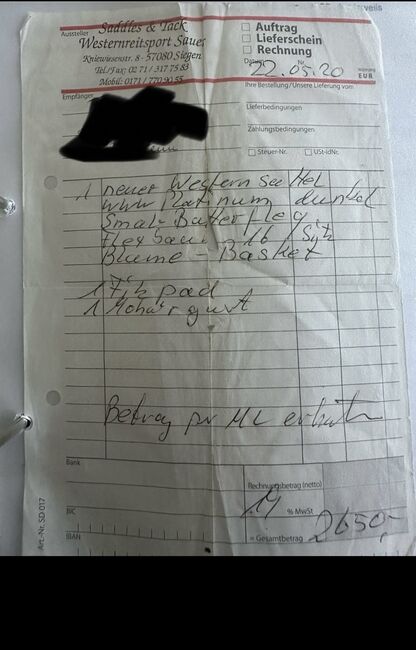 Aussteller
Saddles & Tack
Westernreitsport Sauer
Kniewiesenstr. 8 - 57080 Siegen
Tel./Fax: 02 71 / 317 75 83
Mobil: 0171 / 770 90 55
Auftrag
Lieferschein
Rechnung
Datum Nr.
22.05.20
Währung
EUR
Empfänger
Ihre Bestellung/Unsere Lieferung vom
Lieferbedingungen
Zahlungsbedingungen
Steuer-Nr. USt-IdNr.
1 neuer Western Sattel
Platinum dunkel
Small Butterfley
Flex Baum 16 Sitz
Blume - Basket
1 Pad
1 Mohair gurt
Betrag per erhalten
Bank
BIC
IBAN
Rechnungsbetrag (netto)
19 % MwSt
= Gesamtbetrag 2650,-
Art.-Nr. SD 017